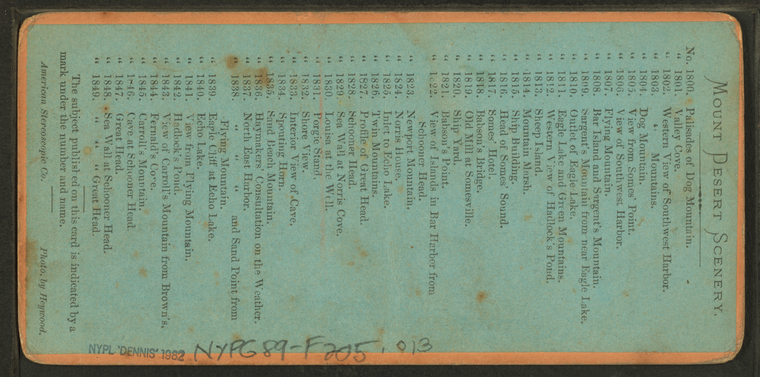 MOUNT DESERT SCENERY.
No. 1800. Palisades of Dog Mountain.
" 1801. Valley Cove.
" 1802. Western View of Southwest Harbor.
" 1803. " " Mountains.
" 1804. Dog Mountain.
" 1805. View from Somes' Point.
" 1806. View of Southwest Harbor.
" 1807. Flying Mountain.
" 1808. Bar Island and Sergent's Mountain.
" 1809. Sargent's Mountain from near Eagle Lake.
" 1810. Outlet of Eagle Lake.
" 1811. Eagle Lake and Green Mountains.
" 1812. Western View of Hadlock's Pond.
" 1813. Sheep Island.
" 1814. Mountain Marsh.
" 1815. Ship Building.
" 1816. Head of Somes' Sound.
" 1817. Somes' Hotel.
" 1818. Babson's Bridge.
" 1819. Old Mill at Somesville.
" 1820. Ship Yard.
" 1821. Babson's Point.
" 1822. View of Islands in Bar Harbor from
Schooner Head.
" 1823. Newport Mountain.
" 1824. Norris House.
" 1825. Inlet to Echo Lake.
" 1826. Twin Mountains.
" 1827. Profile of Great Head.
" 1828. Schooner Head.
" 1829. Sea Wall at Norris Cove.
" 1830. Louisa at the Well.
" 1831. Porgie Stand.
" 1832. Shore View.
" 1833. Interior View of Cave.
" 1834. Spouting Horn.
" 1835. Sand Beach Mountain.
" 1836. Haymakers' Consultation on the Weather.
" 1837. North East Harbor.
" 1838. " " " and Sand Point from
Flying Mountain.
" 1839. Eagle Cliff at Echo Lake.
" 1840. Echo Lake.
" 1841. View from Flying Mountain.
" 1842. Hadlock's Pond.
" 1843. View of Carroll's Mountain from Brown's.
" 1844. Fernall's Cove.
" 1845. Carroll's Mountain.
" 1846. Cave at Schooner Head.
" 1847. Great Head.
" 1848. Sea Wall at Schooner Head.
" 1849. " " " Great Head.
The subject published on this card is indicated by a
mark under the number and name.
American Stereoscopic Co. Photo. by Heywood.
NYPL 'DENNIS' 1982 NYPG89-F205. 013